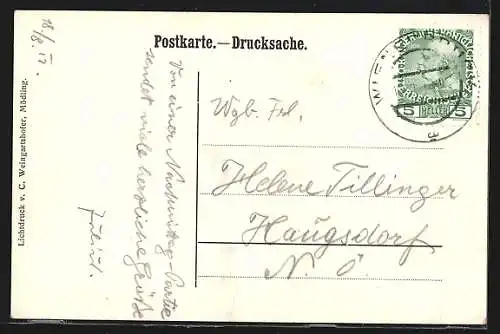 Postkarte.—Drucksache.
18/8. 12.
Von einer Nachmittag-Partie
sendet viele herzliche Grüße
Wgb. Frl.
Helene Tillinger
Haugsdorf
N. Ö.
WIEN
5 HELLER 5
Lichtdruck v. C. Weingartshofer, Mödling.